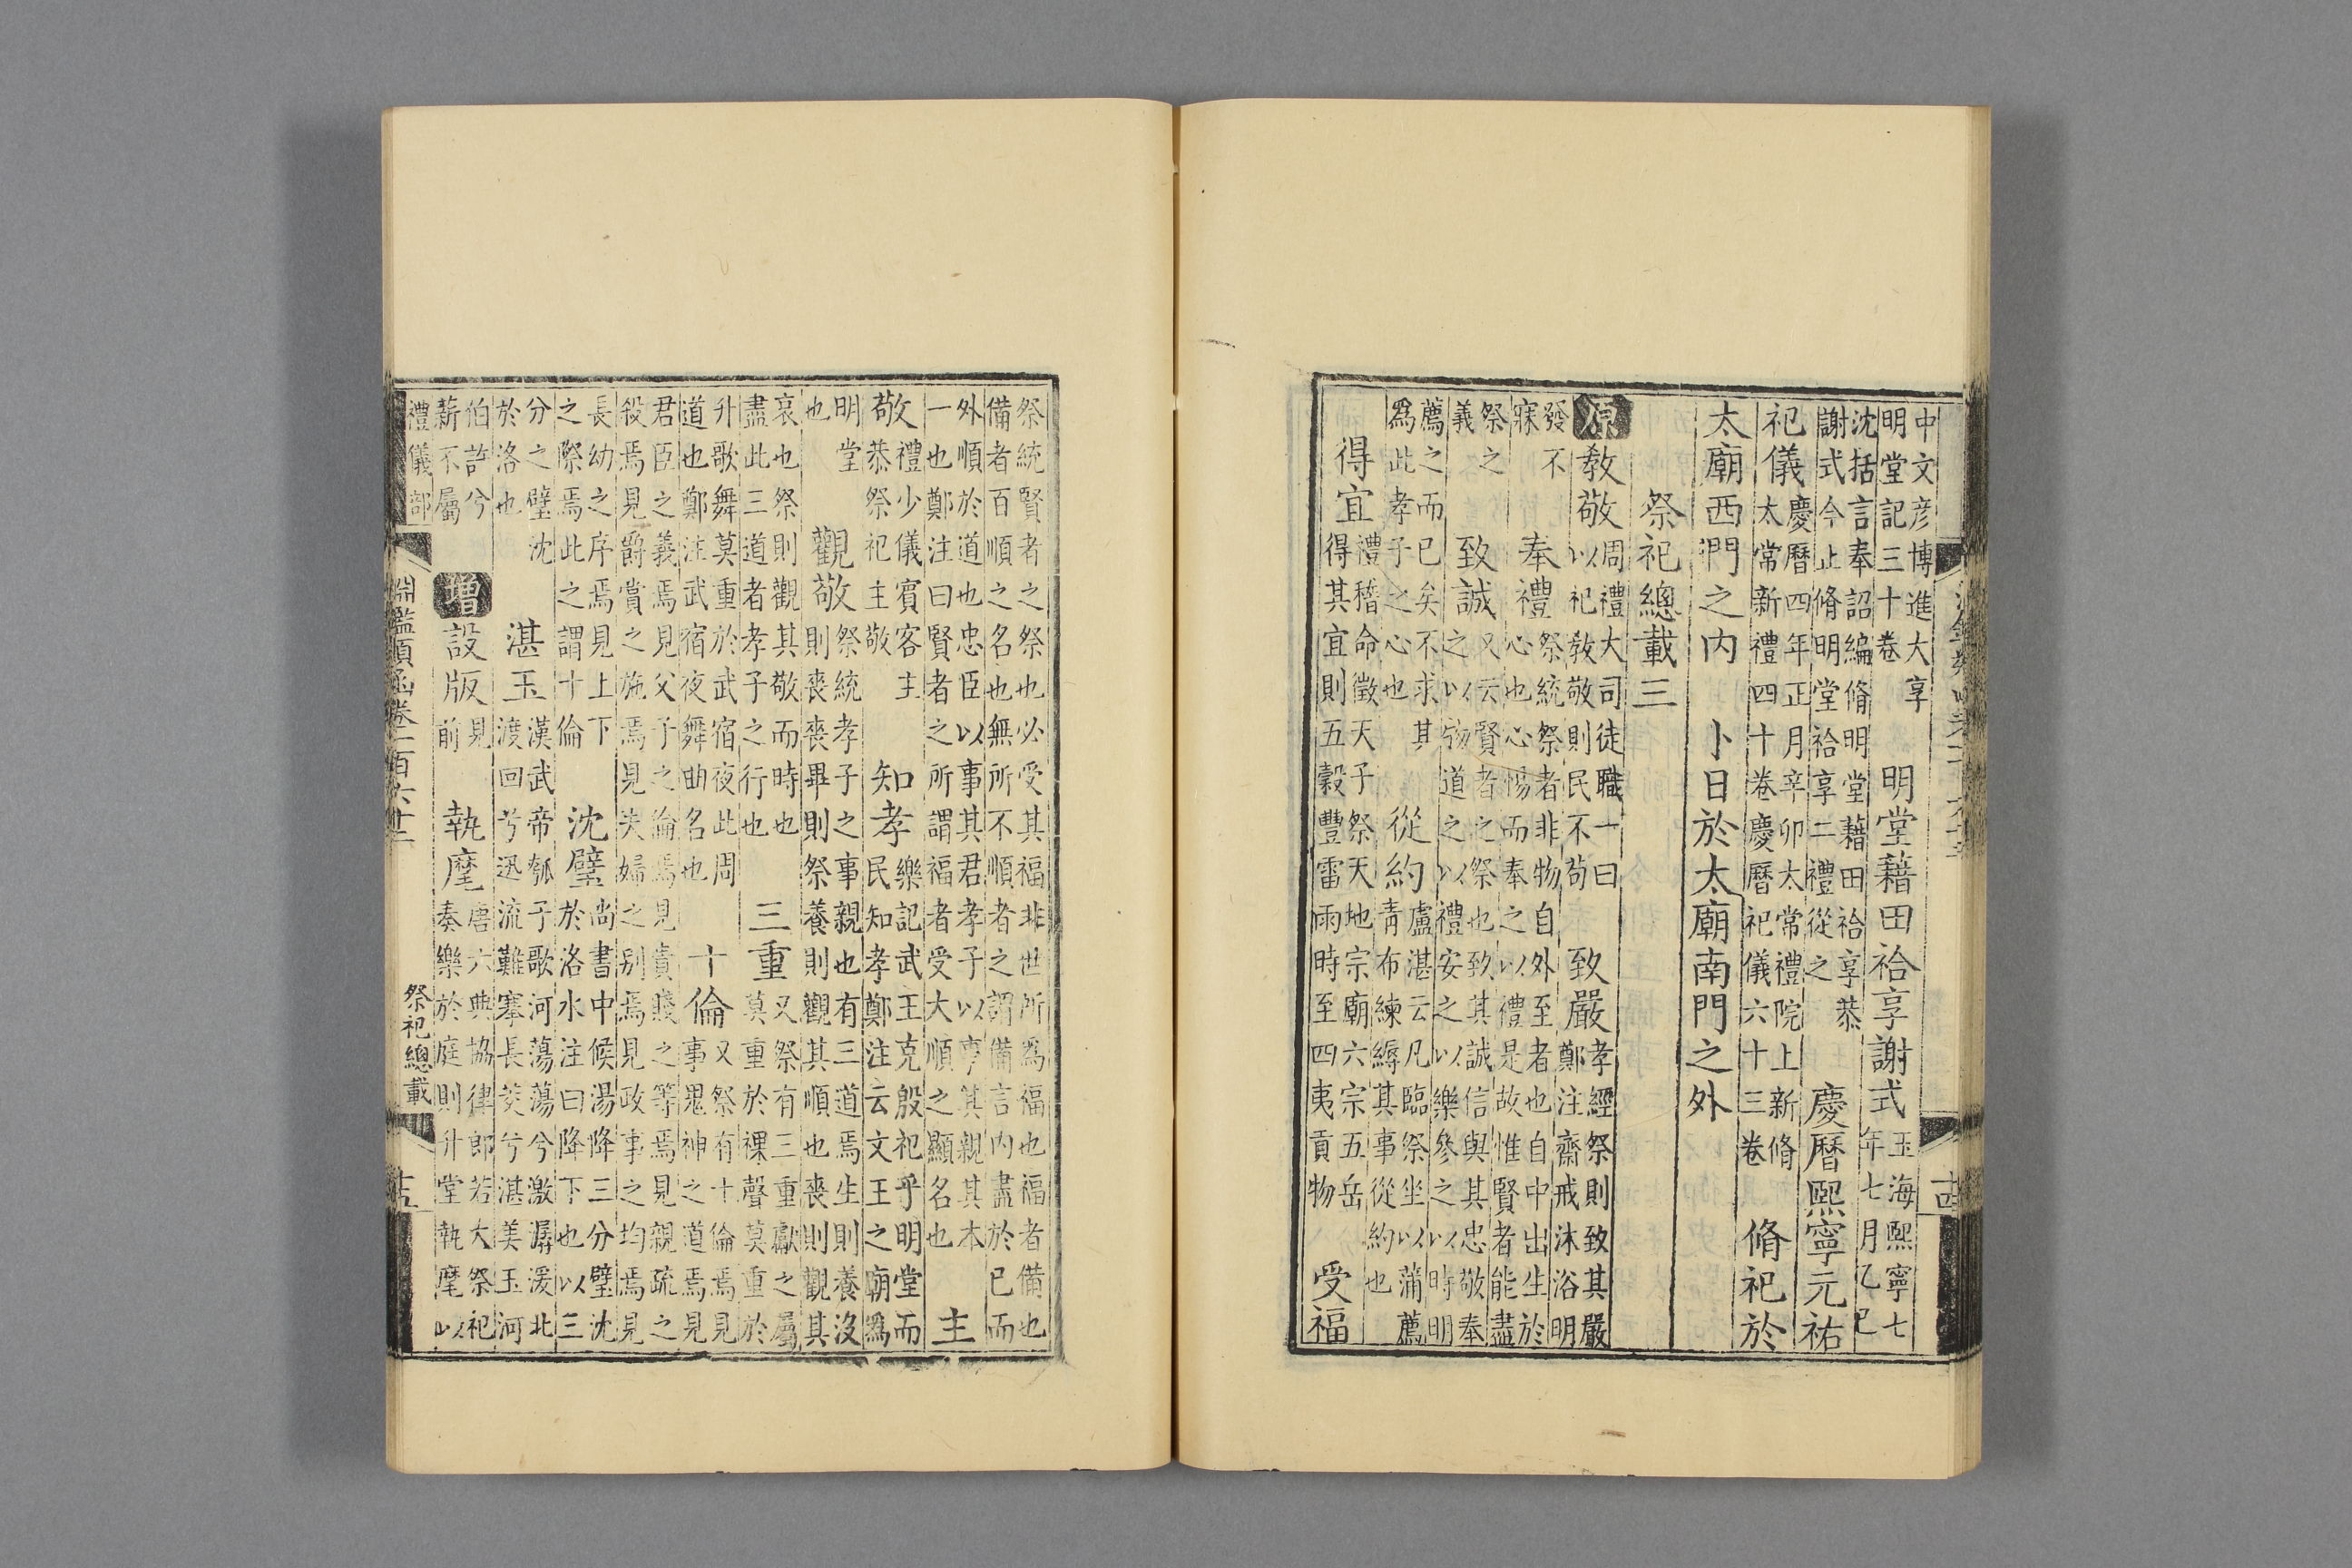 中文彥博進大享
明堂記三十卷
明堂藉田祫享謝式
玉海熙寧七
年七月乙巳
沈括言奉詔編脩明堂藉田祫享恭
謝式今止脩明堂祫享二禮從之
慶曆熙寧元祐
祀儀
慶曆四年正月辛卯太常禮院上新脩
太常新禮四十卷慶曆祀儀六十三卷
脩祀於
太廟西門之内 卜日於太廟南門之外
祭祀總載三
原 敎敬
周禮大司徒職一曰
以祀敎敬則民不苟
致嚴
孝經祭則致其嚴
鄭注齋戒沐浴明
發不
寐
奉禮
祭統祭者非物自外至者也自中出生於
心也心怵而奉之以禮是故惟賢者能盡
祭之
義
致誠
又云賢者之祭也致其誠信與其忠敬奉
之以物道之以禮安之以樂參之以時明
薦之而已矣不求其
爲此孝子之心也
從約
盧湛云凡臨祭坐以蒲薦
青布練縟其事從約也
得宜
禮稽命徵天子祭天地宗廟六宗五岳
得其宜則五穀豐雷雨時至四夷貢物
受福
十四
祭統賢者之祭也必受其福非世所爲福也福者備也
備者百順之名也無所不順者之謂備言内盡於已而
外順於道也忠臣以事其君孝子以享其親其本
一也鄭注曰賢者之所謂福者受大順之顯名也
主
敬
禮少儀賓客主
恭祭祀主敬
知孝
樂記武王克殷祀乎明堂而
民知孝鄭注云文王之廟爲
明堂
也
觀敬
祭統孝子之事親也有三道焉生則養沒
則喪喪畢則祭養則觀其順也喪則觀其
哀也祭則觀其敬而時也
盡此三道者孝子之行也
三重
又祭有三重獻之屬
莫重於祼聲莫重於
升歌舞莫重於武宿夜此周
道也鄭注武宿夜舞曲名也
十倫
又祭有十倫焉見
事鬼神之道焉見
君臣之義焉見父子之倫焉見貴賤之等焉見親疏之
殺焉見爵賞之施焉見夫婦之别焉見政事之均焉見
長幼之序焉見上下
之際焉此之謂十倫
沈璧
尚書中候湯降三分璧沈
於洛水注曰降下也以三
分之璧沈
於洛也
湛玉
漢武帝瓠子歌河蕩蕩兮激潺湲北
渡回兮迅流難搴長茭兮湛美玉河
伯許兮
薪不屬
增 設版
見
前
執麾
唐六典協律郎若大祭祀
奏樂於庭則升堂執麾以
禮儀部
淵鑑類函卷一百六十三
祭祀總載
十五